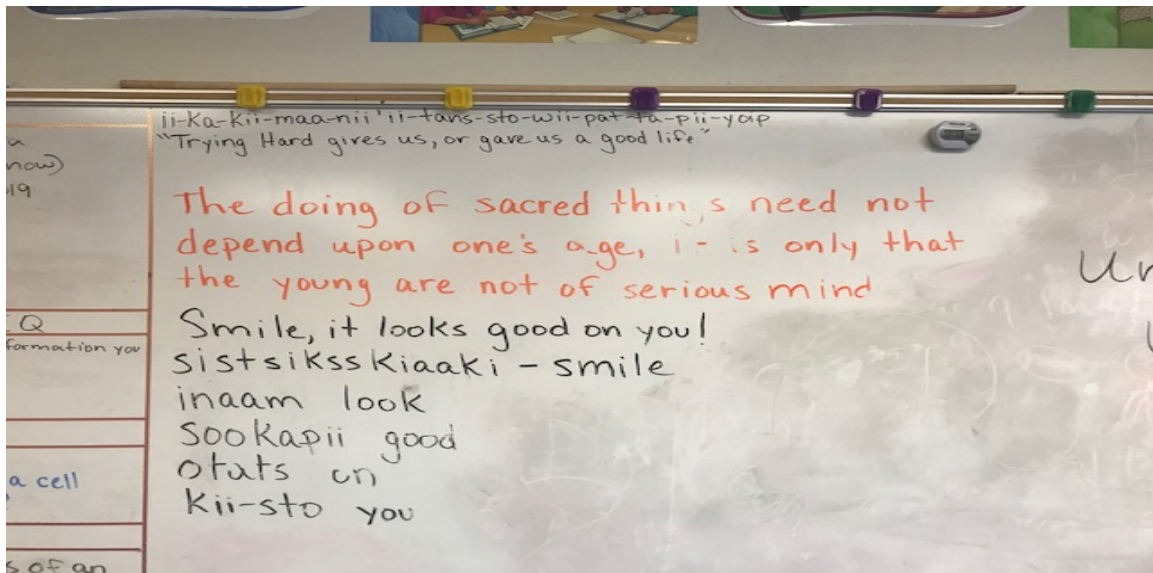 now)
19
Q
formation you
a cell
s of an
ii-Ka-Kii-maa-nii'ii-tans-sto-wii-pat-ta-pii-yoip
"Trying Hard gives us, or gave us a good life"
The doing of sacred things need not
depend upon one's age, i- is only that
the young are not of serious mind
Smile, it looks good on you!
sistsiksskiaaki - smile
inaam look
Sookapii good
otats on
Kii-sto you
Ur